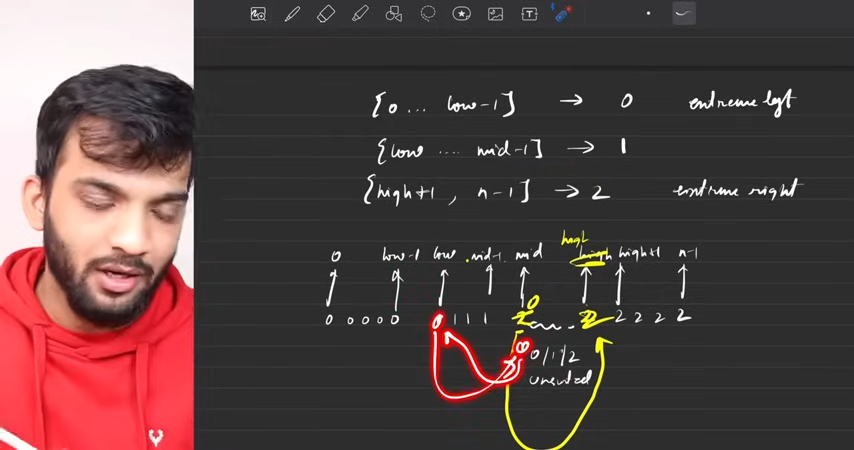 [0 ... low-1] → 0 extreme left
[low .... mid-1] → 1
[high+1 , n-1] → 2 extreme right
high
0 low-1 low mid-1 mid high high+1 n-1
0
0 0 0 0 0 0 1 1 1 2 2 2 2 2 2
0/1/2
unsorted